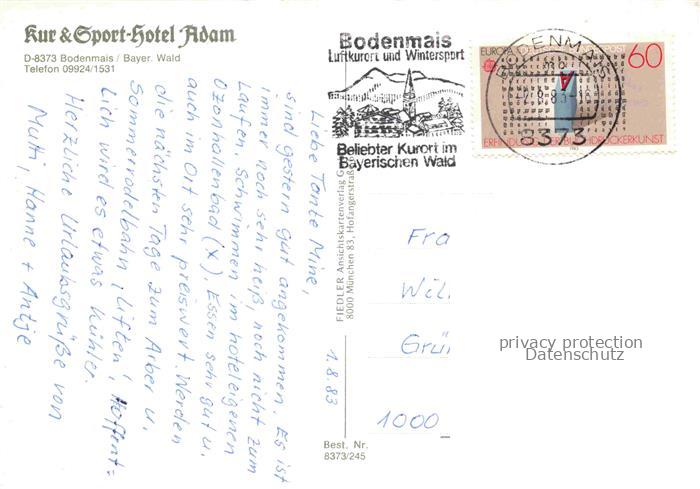 Kur & Sport-Hotel Adam
D-8373 Bodenmais / Bayer. Wald
Telefon 09924/1531
Bodenmais
Luftkurort und Wintersport
Beliebter Kurort im
Bayerischen Wald
BODENMAIS
8373
EUROPA
POST
60
A
ERFINDUNG DER BUCHDRUCKERKUNST
1.8.83
Liebe Tante Mine,
sind gestern gut angekommen. Es ist
immer noch sehr heiß, noch nicht zum
Laufen. Schwimmen im hoteleigenen
Ozonhallenbad (x). Essen sehr gut u.
auch im Ort sehr preiswert. Werden
die nächsten Tage zum Arber u.
Sommerrodelbahn "liften", Hoffent=
lich wird es etwas kühler.
Herzliche Urlaubsgrüße von
Mutti, Hanne + Antje
FIEDLER Ansichtskartenverlag
8000 München 83, Hofangerstraße
Fra
Wil
Grün
1000
privacy protection
Datenschutz
Best. Nr.
8373/245